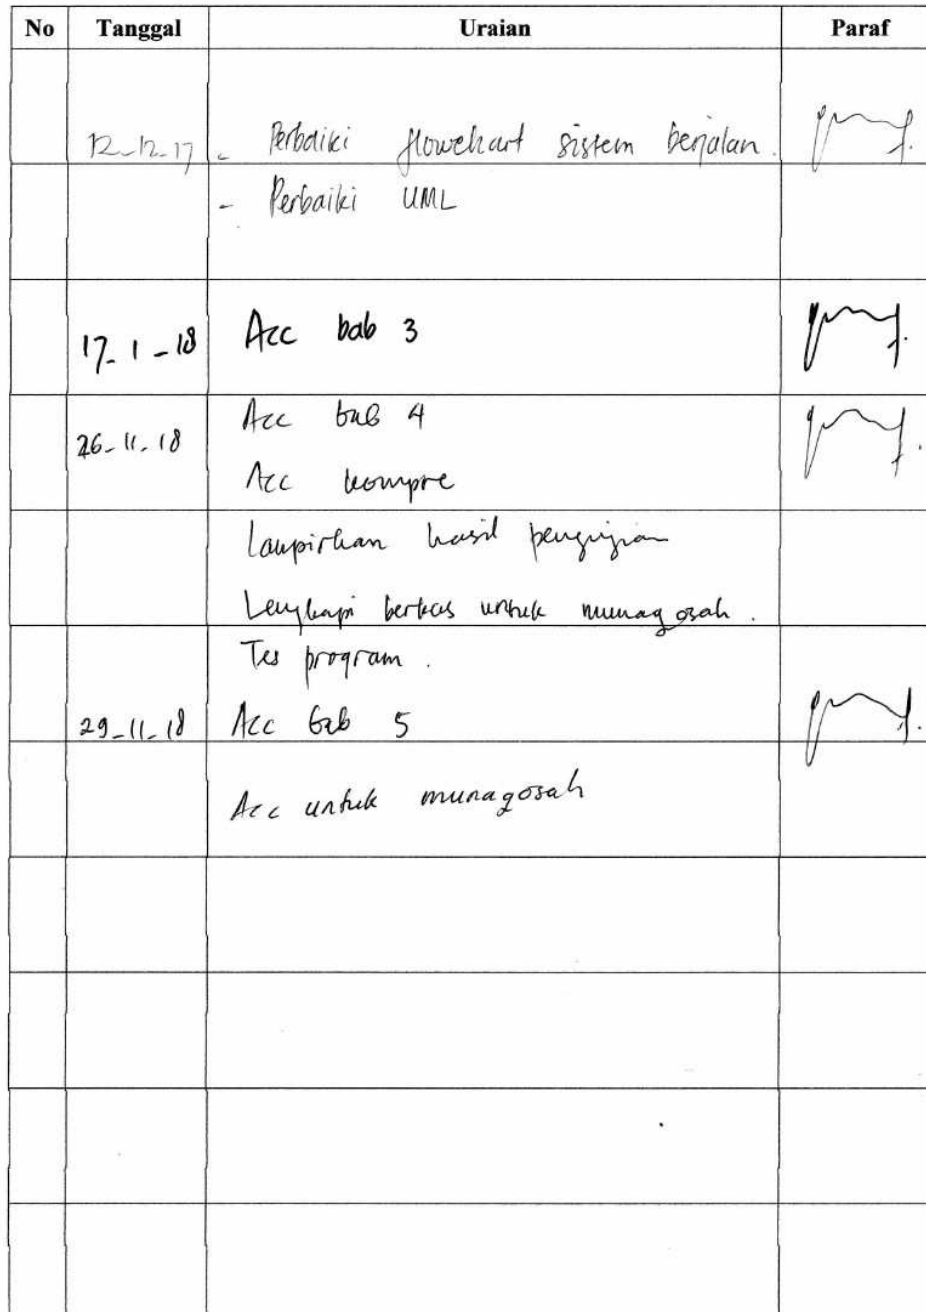 No Tanggal Uraian Paraf
12-12-17 - Perbaiki flowchart sistem berjalan.
- Perbaiki UML
17-1-18 Acc bab 3
26-11-18 Acc bab 4
Acc kompre
Lampirkan hasil pengujian
Lengkapi berkas untuk munaqosah.
Tes program.
29-11-18 Acc bab 5
Acc untuk munaqosah